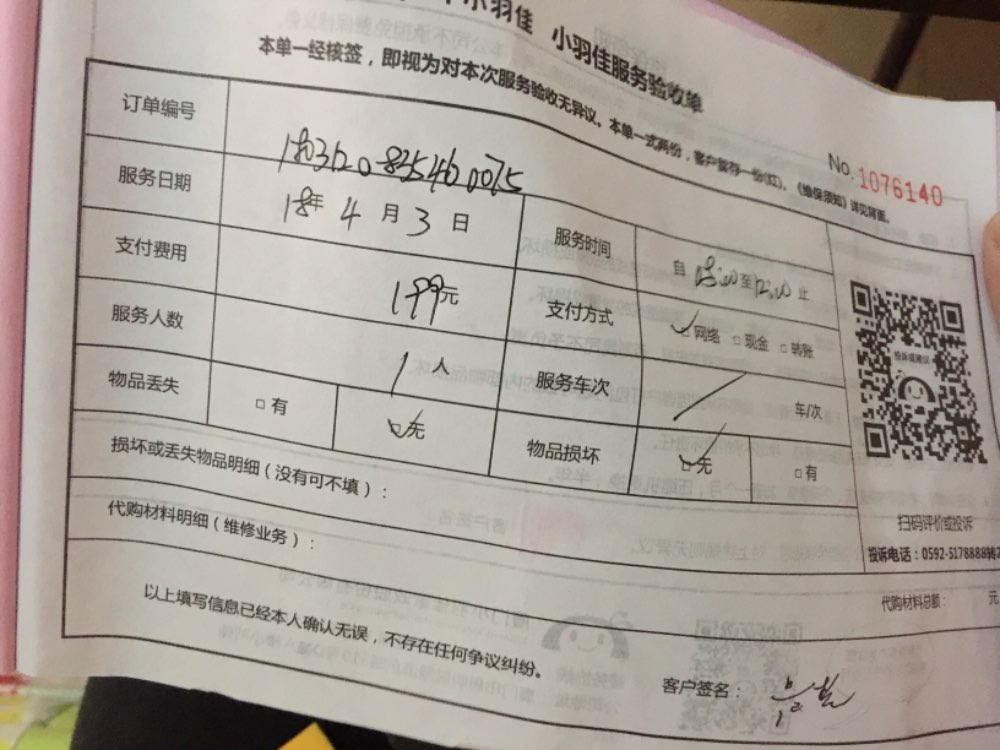 小羽佳 小羽佳服务验收单
本单一经核签，即视为对本次服务验收无异议。本单一式两份，客户暂存一份(红)。《维保须知》详见背面。
No. 1076140
订单编号
服务日期 18年 4 月 3 日 服务时间 自 至 止
支付费用 199元 支付方式 网络 □ 现金 □ 转账
服务人数 1 人 服务车次 / 车/次
物品丢失 □ 有 无 物品损坏 无 □ 有
损坏或丢失物品明细(没有可不填)：
代购材料明细(维修业务)：
代购材料总额： 元
投诉或建议
扫码评价或投诉
投诉电话：0592-5178888转2
以上填写信息已经本人确认无误，不存在任何争议纠纷。
客户签名：